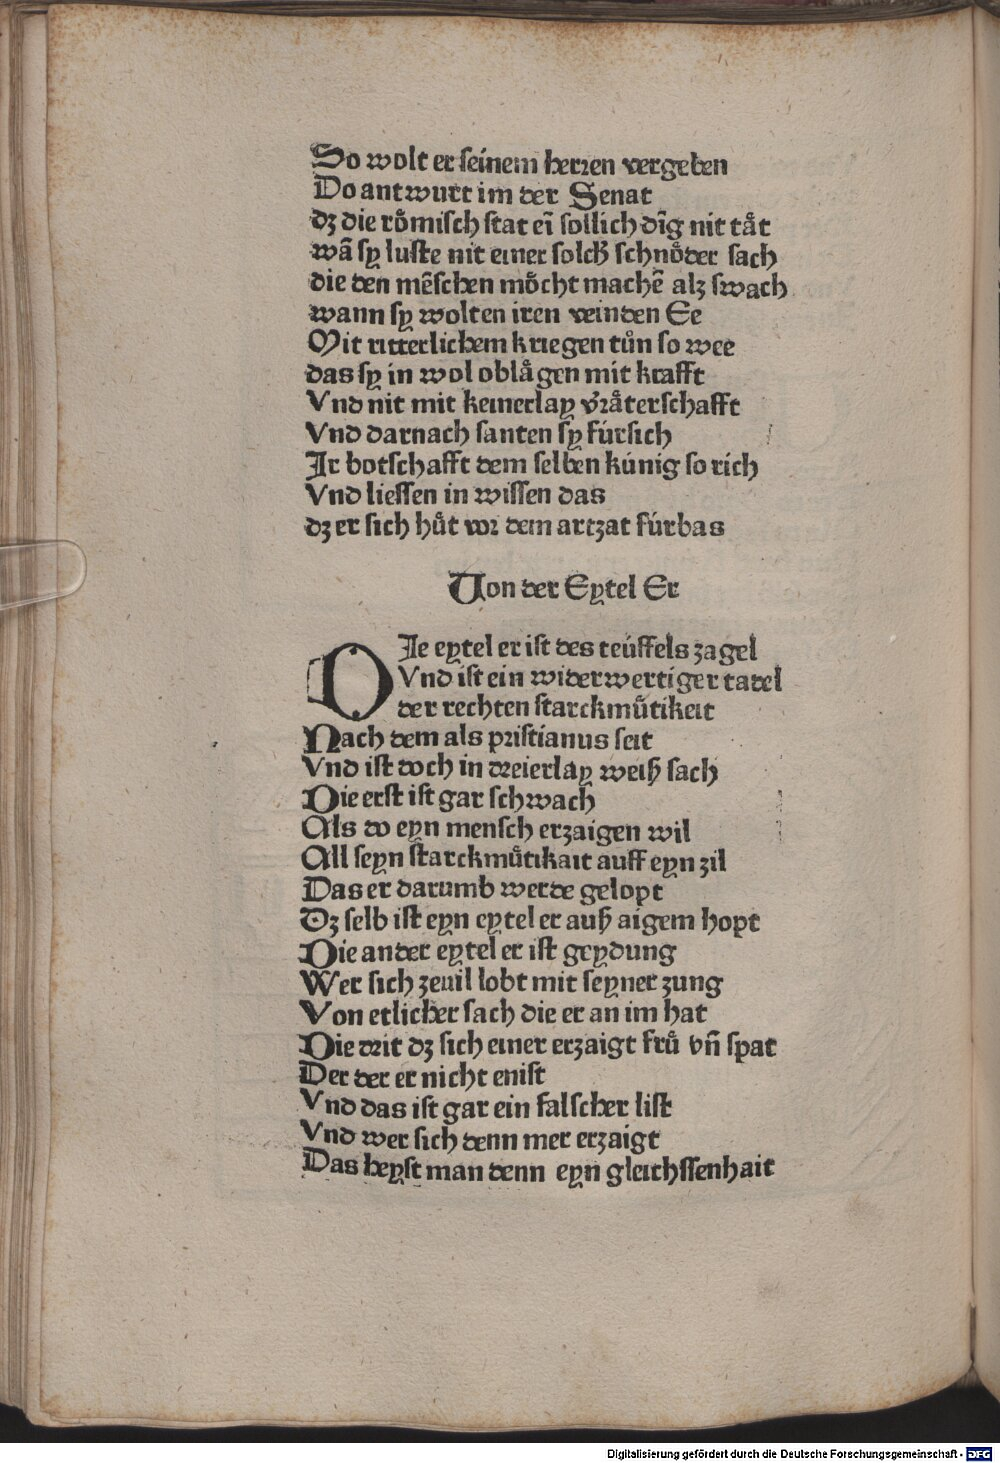 So wolt er seinem herꝛen vergeben
Do antwurt im der Senat
dz die roͤmisch stat eī sollich dīg nit taͤt
wā sy luste nit einer solcħ schnoͤder sach
die den mēschen moͤcht machē alz swach
wann sy wolten iren veinden Ee
Mit ritterlichem kriegen tuͦn so wee
das sy in wol oblaͤgen mit krafft
Vnd nit mit keinerlay v̄raͤterschafft
Vnd darnach santen sy fúrsich
Ir botschafft dem selben kúnig so rich
Vnd liessen in wissen das
dz er sich huͤt voꝛ dem artzat fúrbas
Von der Eytel Er
DIe eytel er ist des teúffels zagel
Vnd ist ein widerwertiger tadel
der rechten starckmuͤtikeit
Nach dem als pristianus seit
Vnd ist doch in dreierlay weiß sach
Die erst ist gar schwach
Als do eyn mensch erzaigen wil
All seyn starckmuͤtikait auff eyn zil
Das er darumb werde gelopt
Dz selb ist eyn eytel er auß aigem hopt
Die ander eytel er ist geydung
Wer sich zeuil lobt mit seyner zung
Von etlicher sach die er an im hat
Die drit dz sich einer erzaigt fruͤ vn̄ spat
Der der er nicht enist
Vnd das ist gar ein falscher list
Vnd wer sich denn mer erzaigt
Das heyst man denn eyn gleichssenhait
Digitalisierung gefördert durch die Deutsche Forschungsgemeinschaft - DFG